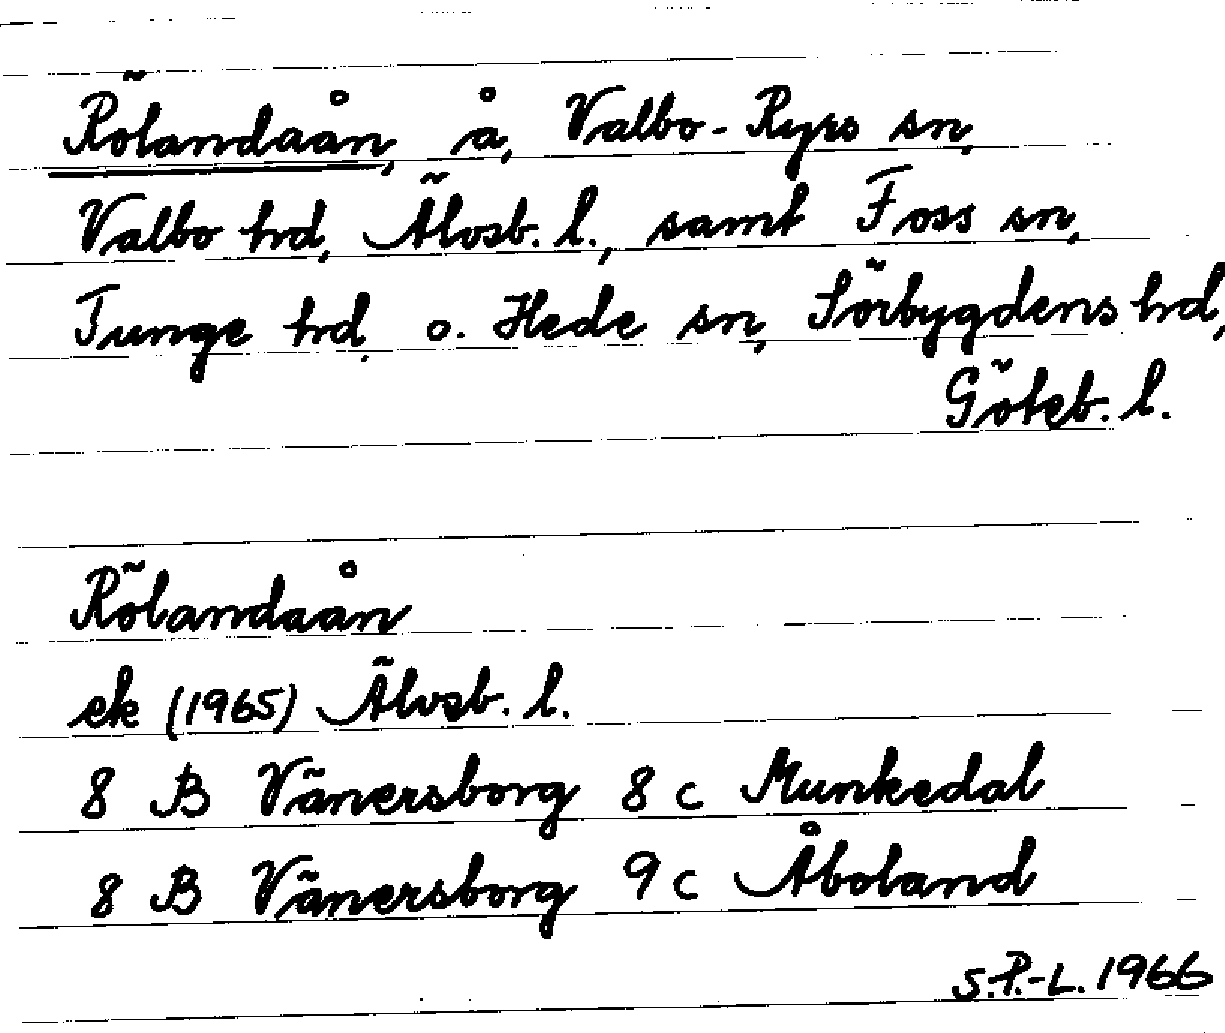 Rölandaån, å, Valbo-Ryrs sn,
Valbo hd, Älvsb. l., samt Foss sn,
Tunge hd. o. Hede sn, Sörbygdens hd,
Göteb. l.
Rölandaån
ek (1965) Älvsb. l.
8 B Vänersborg 8 c Munkedal
8 B Vänersborg 9 c Åboland
S.P.-L. 1966